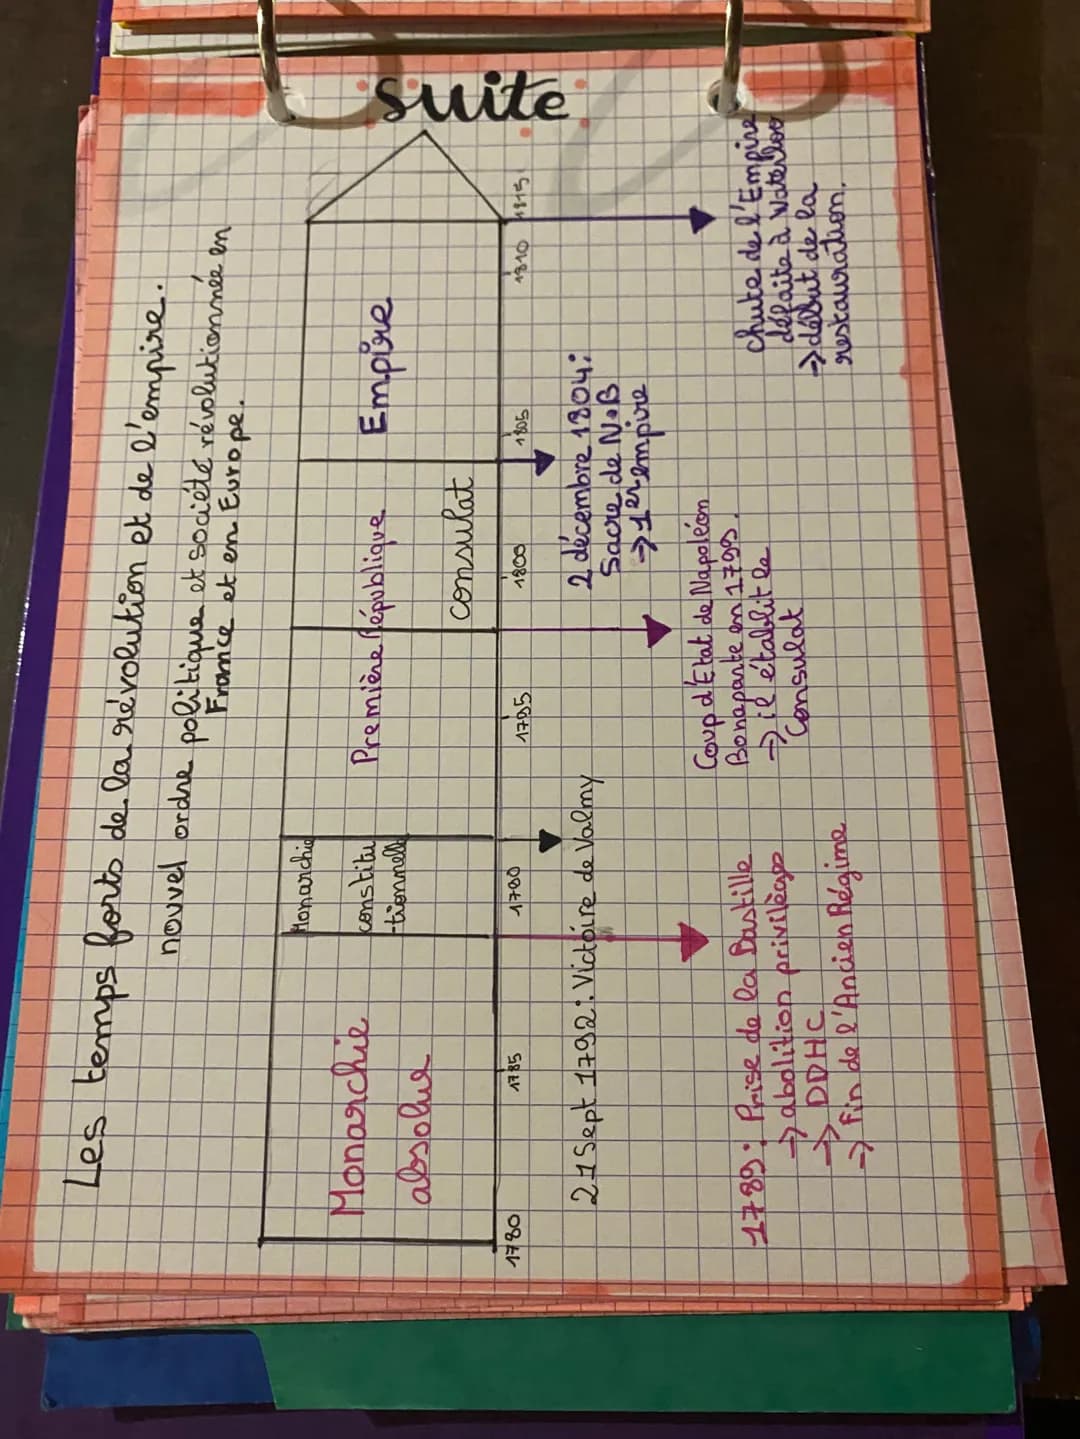 suite
Les temps forts de la révolution et de l'empire.
nouvel ordre politique et société révolutionnée en
France et en Europe.
Monarchie
absolue
Monarchie
constitu
-tionnelle
Première République
consulat
Empire
1780
1785
1790
1795
1800
1805
1810
1815
21 Sept 1792: Victoire de Valmy
2 décembre 1804:
Sacre de N.B
→ 1er empire
1789: Prise de la Bastille
→ abolition privilèges
→ DDHC
→ Fin de l'Ancien Régime
Coup d'Etat de Napoléon
Bonaparte en 1799.
→ il établit le
Consulat
chute de l'Empire
défaite à Waterloo
→ début de la
restauration.